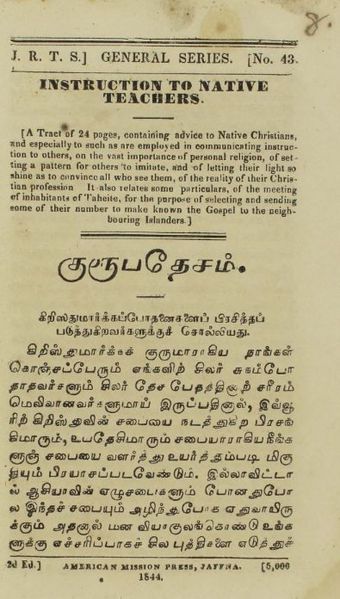 8.
J. R. T. S.] GENERAL SERIES. [No. 43.
INSTRUCTION TO NATIVE
TEACHERS.
[A Tract of 24 pages, containing advice to Native Christians,
and especially to such as are employed in communicating instruc-
tion to others, on the vast importance of personal religion, of set-
ting a pattern for others to imitate, and of letting their light so
shine as to convince all who see them, of the reality of their Chris-
tian profession It also relates some particulars, of the meeting
of inhabitants of Taheite, for the purpose of selecting and sending
some of their number to make known the Gospel to the neigh-
bouring Islanders.]
குரூபதேசம்.
கிறிஸ்துமார்க்கப்போதனைகளைப் பிரசித்தப்
படுத்துகிறவர்களுக்குச் சொல்லியது.
கிறிஸ்துமார்க்கக் குருமாராகிய நாங்கள்
கொஞ்சப்பேரும் எங்களிற் சிலர் சுகம்போ
நாதவர்களும் சிலர் தேச பேதத்திற் சரீரம்
மெலிவானவர்களுமாய் இருப்பதினால், இவ்வூ
ரிற் கிறிஸ்துவின் சபையை நடத்துகிற பிரசங்
கிமாரும், உபதேசிமாரும் சபையாராகியநீங்க
ளுஞ் சபையை வளர்த்து உயர்த்தும்படி மிகு
தியும் பிரயாசப்படவேண்டும். இல்லாவிட்டா
ல் ஆசியாவின் ஏழுசபைகளும் போனதுபோ
ல இந்தச் சபையும் அழிந்துபோக ஏதுவாயிரு
க்கும் அதனால் மன வியாகுலங்கொண்டு உங்க
ளுக்கு எச்சரிப்பாகச் சில புத்திகளை எடுத்துச்
2d Ed.] AMERICAN MISSION PRESS, JAFFNA. [5,000
1844.